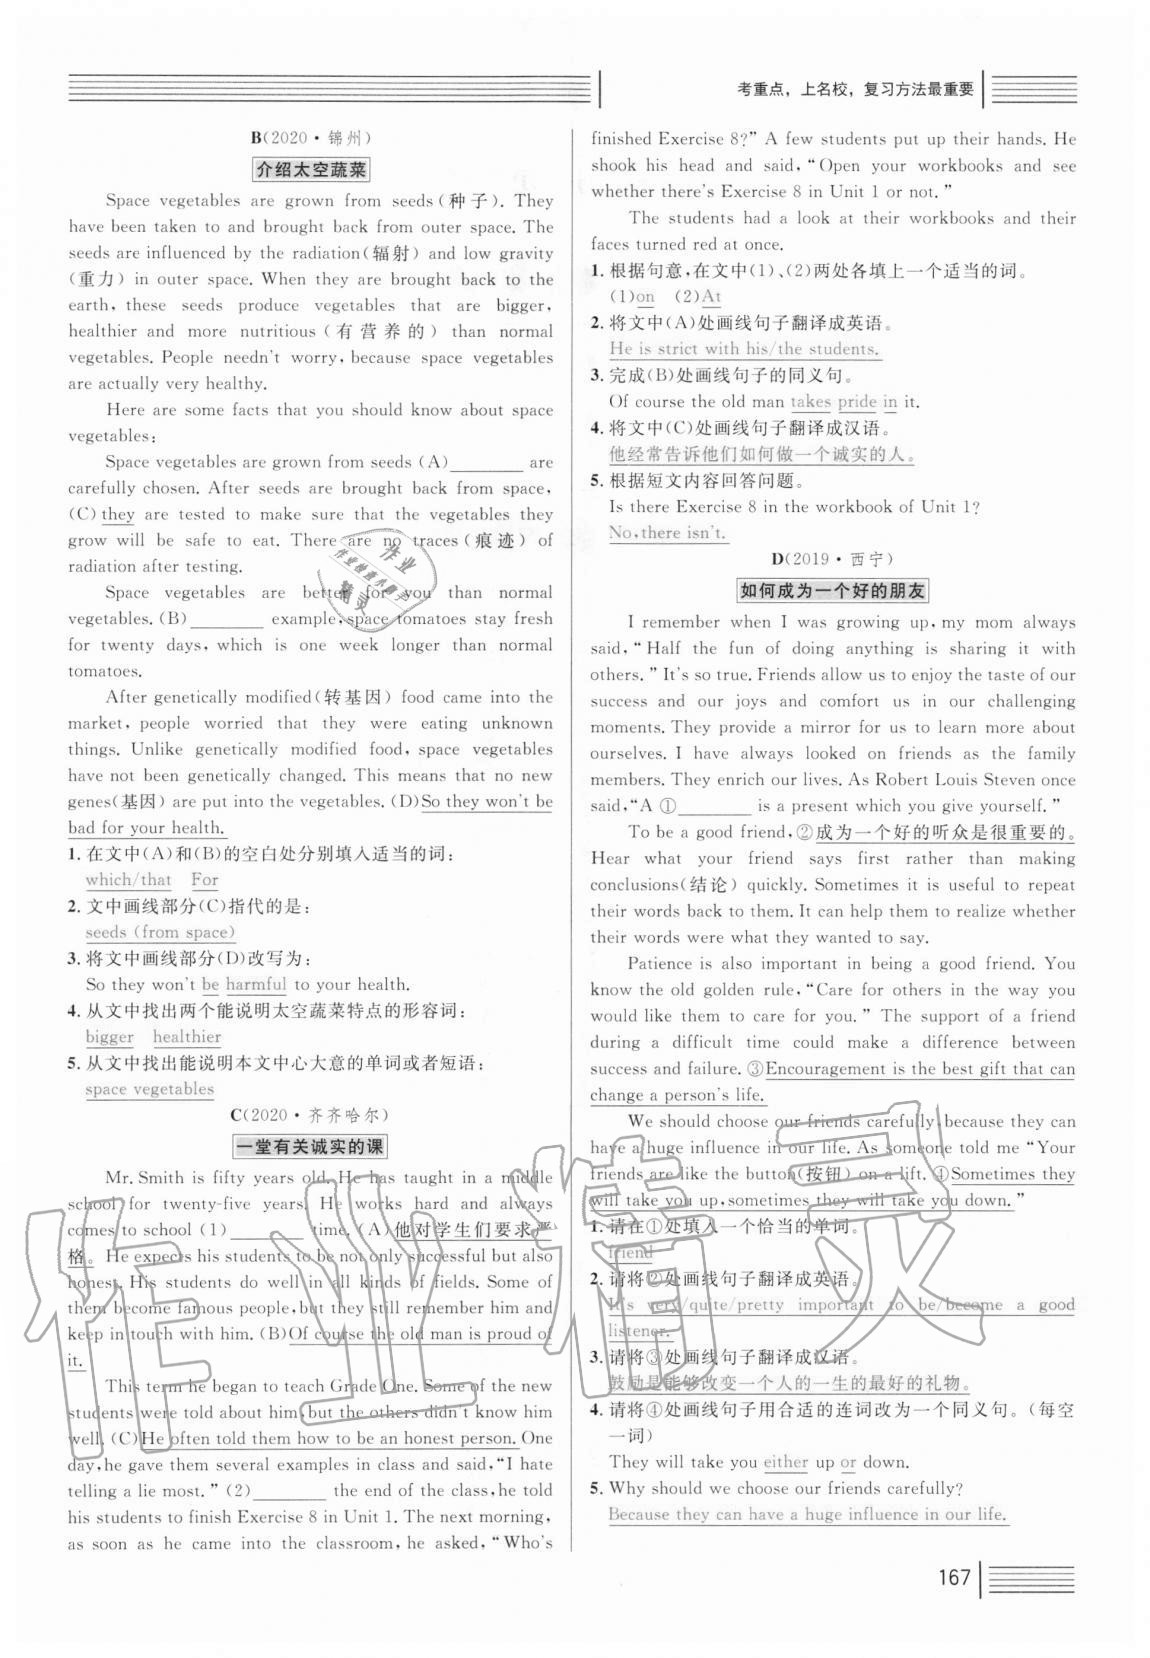 考重点，上名校，复习方法最重要
B(2020·锦州)
介绍太空蔬菜
Space vegetables are grown from seeds(种子). They
have been taken to and brought back from outer space. The
seeds are influenced by the radiation(辐射) and low gravity
(重力) in outer space. When they are brought back to the
earth, these seeds produce vegetables that are bigger,
healthier and more nutritious(有营养的) than normal
vegetables. People needn't worry, because space vegetables
are actually very healthy.
Here are some facts that you should know about space
vegetables:
Space vegetables are grown from seeds (A)________ are
carefully chosen. After seeds are brought back from space,
(C) they are tested to make sure that the vegetables they
grow will be safe to eat. There are no traces(痕迹) of
radiation after testing.
Space vegetables are better for you than normal
vegetables. (B)________ example, space tomatoes stay fresh
for twenty days, which is one week longer than normal
tomatoes.
After genetically modified(转基因) food came into the
market, people worried that they were eating unknown
things. Unlike genetically modified food, space vegetables
have not been genetically changed. This means that no new
genes(基因) are put into the vegetables. (D)So they won't be
bad for your health.
1. 在文中(A)和(B)的空白处分别填入适当的词：
which/that For
2. 文中画线部分(C)指代的是：
seeds (from space)
3. 将文中画线部分(D)改写为：
So they won't be harmful to your health.
4. 从文中找出两个能说明太空蔬菜特点的形容词：
bigger healthier
5. 从文中找出能说明本文中心大意的单词或者短语：
space vegetables
C(2020·齐齐哈尔)
一堂有关诚实的课
Mr. Smith is fifty years old. He has taught in a middle
school for twenty-five years. He works hard and always
comes to school (1)________ time. (A)他对学生们要求严
格。He expects his students to be not only successful but also
honest. His students do well in all kinds of fields. Some of
them become famous people, but they still remember him and
keep in touch with him. (B)Of course the old man is proud of
it.
This term he began to teach Grade One. Some of the new
students were told about him, but the others didn't know him
well. (C)He often told them how to be an honest person. One
day, he gave them several examples in class and said, "I hate
telling a lie most." (2)________ the end of the class, he told
his students to finish Exercise 8 in Unit 1. The next morning,
as soon as he came into the classroom, he asked, "Who's
finished Exercise 8?" A few students put up their hands. He
shook his head and said, "Open your workbooks and see
whether there's Exercise 8 in Unit 1 or not."
The students had a look at their workbooks and their
faces turned red at once.
1. 根据句意，在文中(1)、(2)两处各填上一个适当的词。
(1)on (2)At
2. 将文中(A)处画线句子翻译成英语。
He is strict with his/the students.
3. 完成(B)处画线句子的同义句。
Of course the old man takes pride in it.
4. 将文中(C)处画线句子翻译成汉语。
他经常告诉他们如何做一个诚实的人。
5. 根据短文内容回答问题。
Is there Exercise 8 in the workbook of Unit 1?
No, there isn't.
D(2019·西宁)
如何成为一个好的朋友
I remember when I was growing up, my mom always
said, "Half the fun of doing anything is sharing it with
others." It's so true. Friends allow us to enjoy the taste of our
success and our joys and comfort us in our challenging
moments. They provide a mirror for us to learn more about
ourselves. I have always looked on friends as the family
members. They enrich our lives. As Robert Louis Steven once
said, "A ①________ is a present which you give yourself."
To be a good friend, ②成为一个好的听众是很重要的。
Hear what your friend says first rather than making
conclusions(结论) quickly. Sometimes it is useful to repeat
their words back to them. It can help them to realize whether
their words were what they wanted to say.
Patience is also important in being a good friend. You
know the old golden rule, "Care for others in the way you
would like them to care for you." The support of a friend
during a difficult time could make a difference between
success and failure. ③Encouragement is the best gift that can
change a person's life.
We should choose our friends carefully because they can
have a huge influence in our life. As someone told me "Your
friends are like the button(按钮) on a lift. ④Sometimes they
will take you up, sometimes they will take you down."
1. 请在①处填入一个恰当的单词。
friend
2. 请将②处画线句子翻译成英语。
It's very/quite/pretty important to be/become a good
listener.
3. 请将③处画线句子翻译成汉语。
鼓励是能够改变一个人的一生的最好的礼物。
4. 请将④处画线句子用合适的连词改为一个同义句。(每空
一词)
They will take you either up or down.
5. Why should we choose our friends carefully?
Because they can have a huge influence in our life.
167
作业精灵